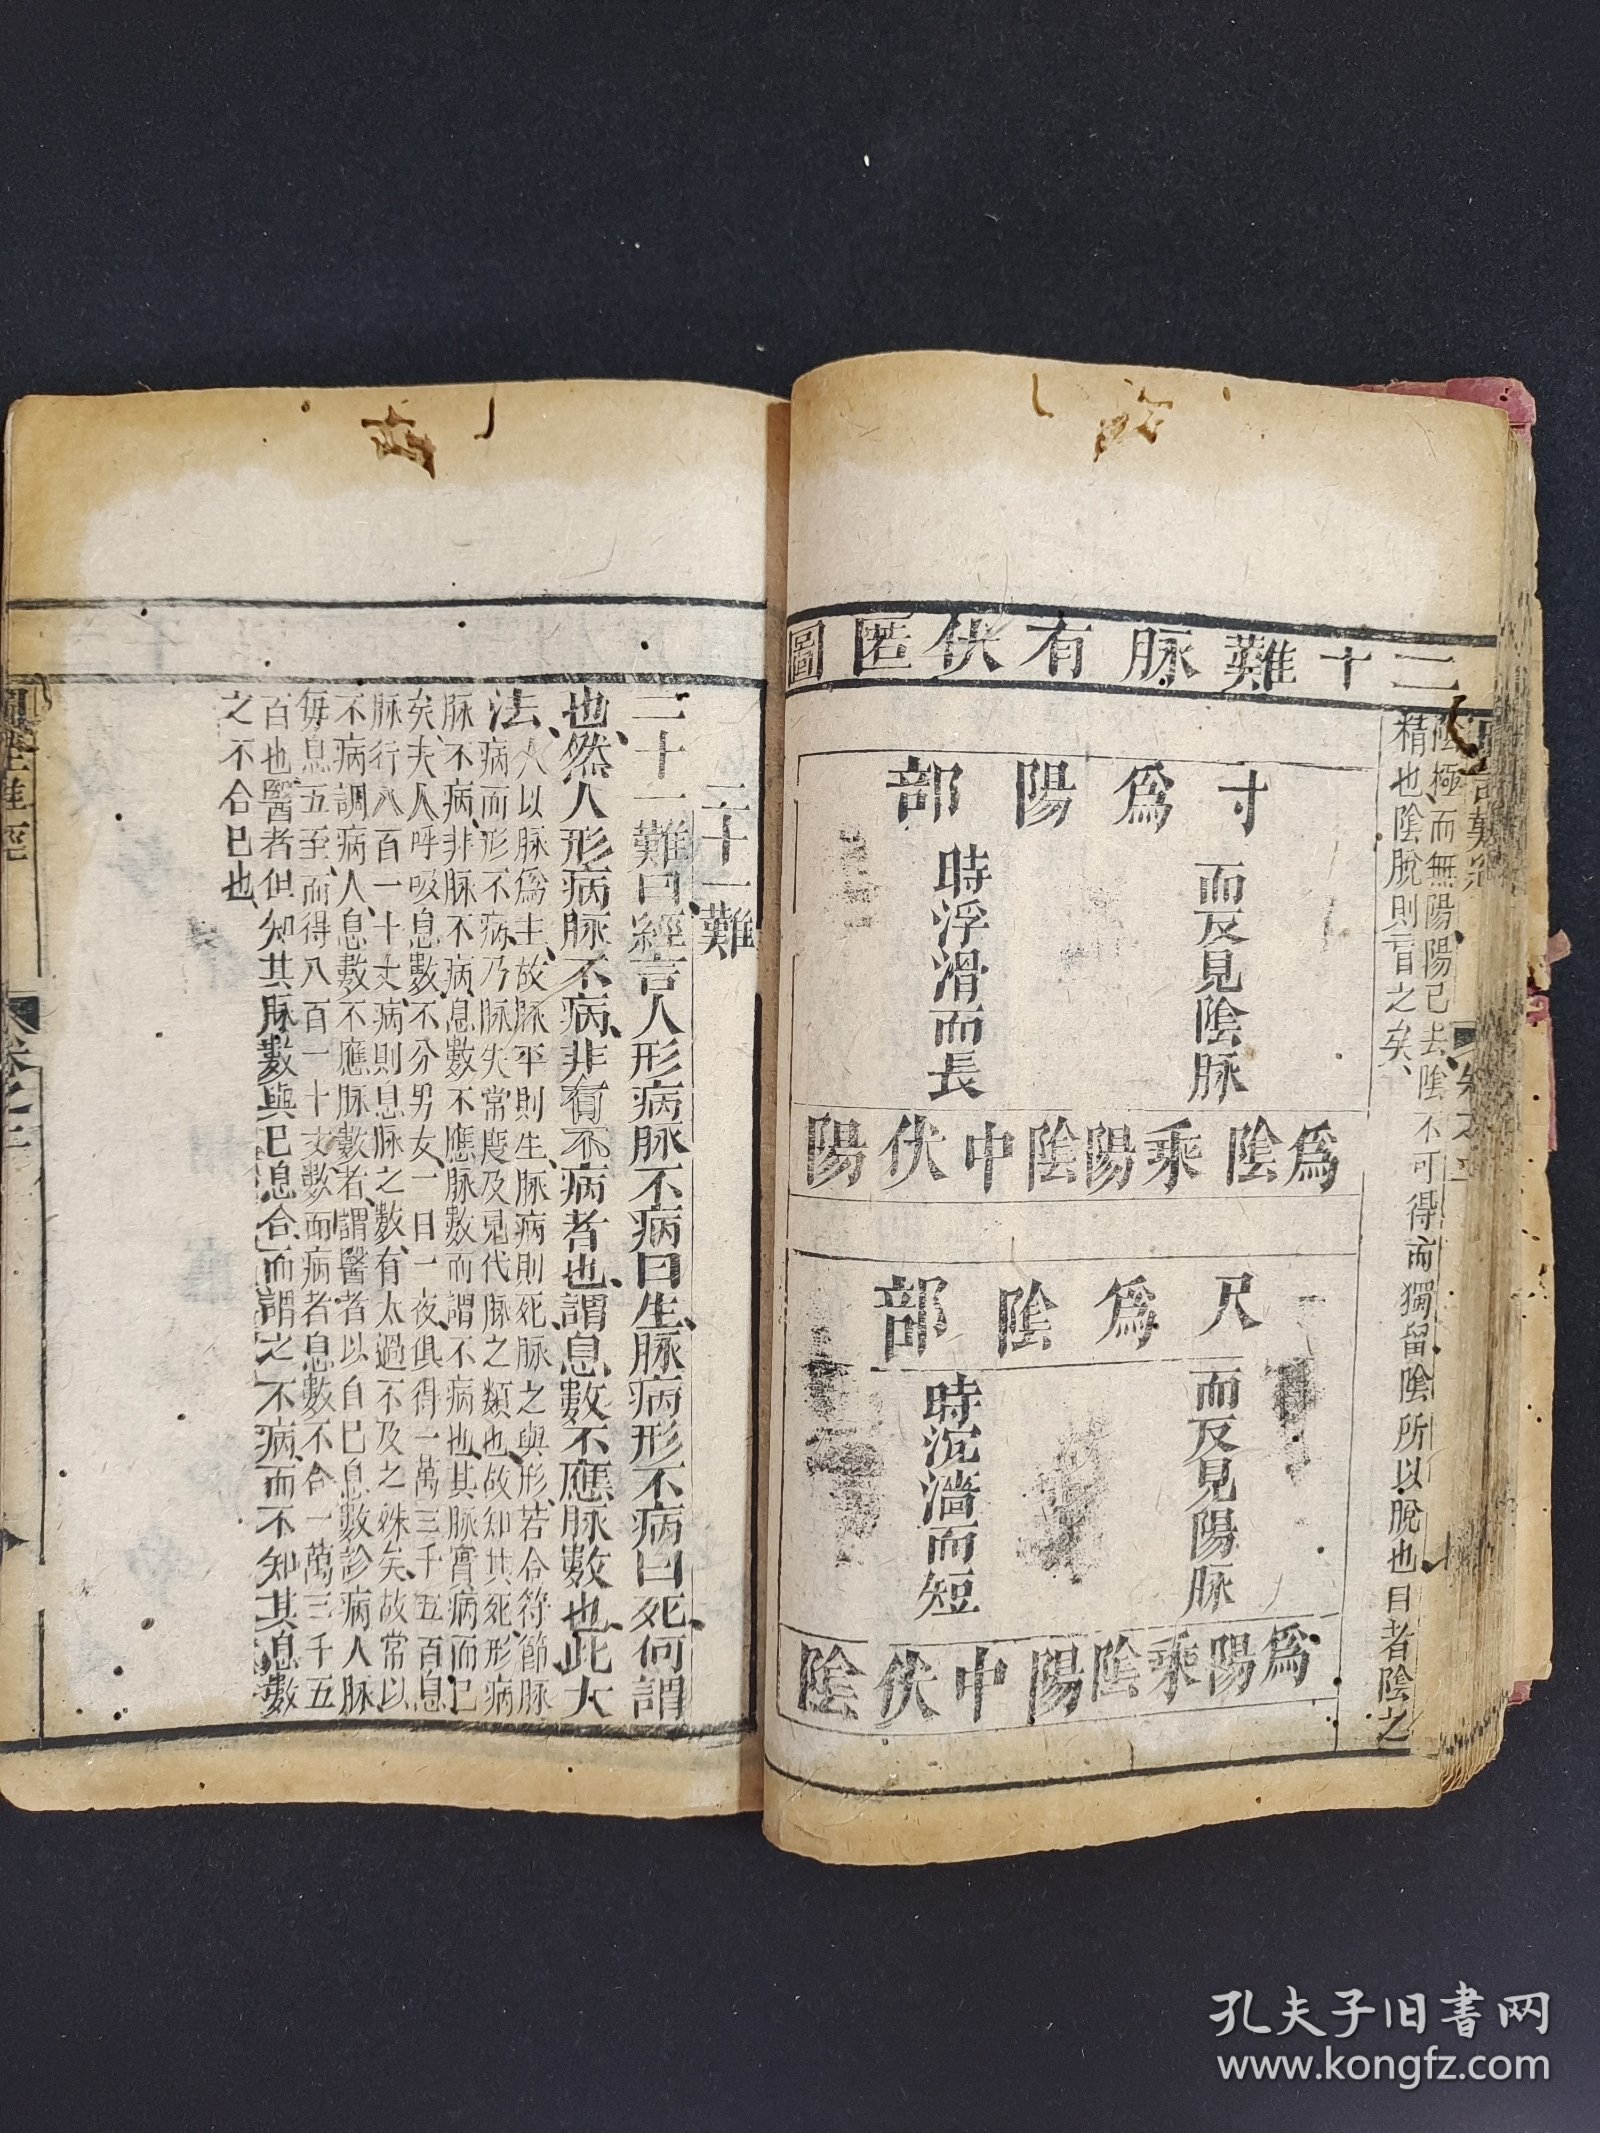 二十難脉有伏匿圖
陰極而無陽陽已去陰不可得而獨留陰所以脫也目者陰之
精也陰脫則盲之矣
寸爲陽部
而反見陰脉
時浮滑而長
爲陰乘陽陰中伏陽
尺爲陰部
而反見陽脉
時沉濇而短
爲陽乘陰陽中伏陰
二十一難
二十一難曰經言人形病脉不病曰生脉病形不病曰死何謂
也然人形病脉不病非有不病者也謂息數不應脉數也此大
法
人以脉爲主故脉平則生脉病則死脉之與形若合符節脉
病而形不病乃脉失常度及見代脉之類也故知其死形病
脉不病非脉不病息數不應脉數而謂不病也其脉實病而已
矣夫人呼吸息數不分男女一日一夜俱得一萬三千五百息
脉行八百一十丈病則息脉之數有太過不及之殊矣故常以
不病調病人息數不應脉數者謂醫者以自已息數診病人脉
毎息五至而得八百一十丈數而病者息數不合一萬三千五
百也醫者但知其脉數與已息合而謂之不病而不知其息數
之不合已也
卷之二
孔夫子旧书网
www.kongfz.com